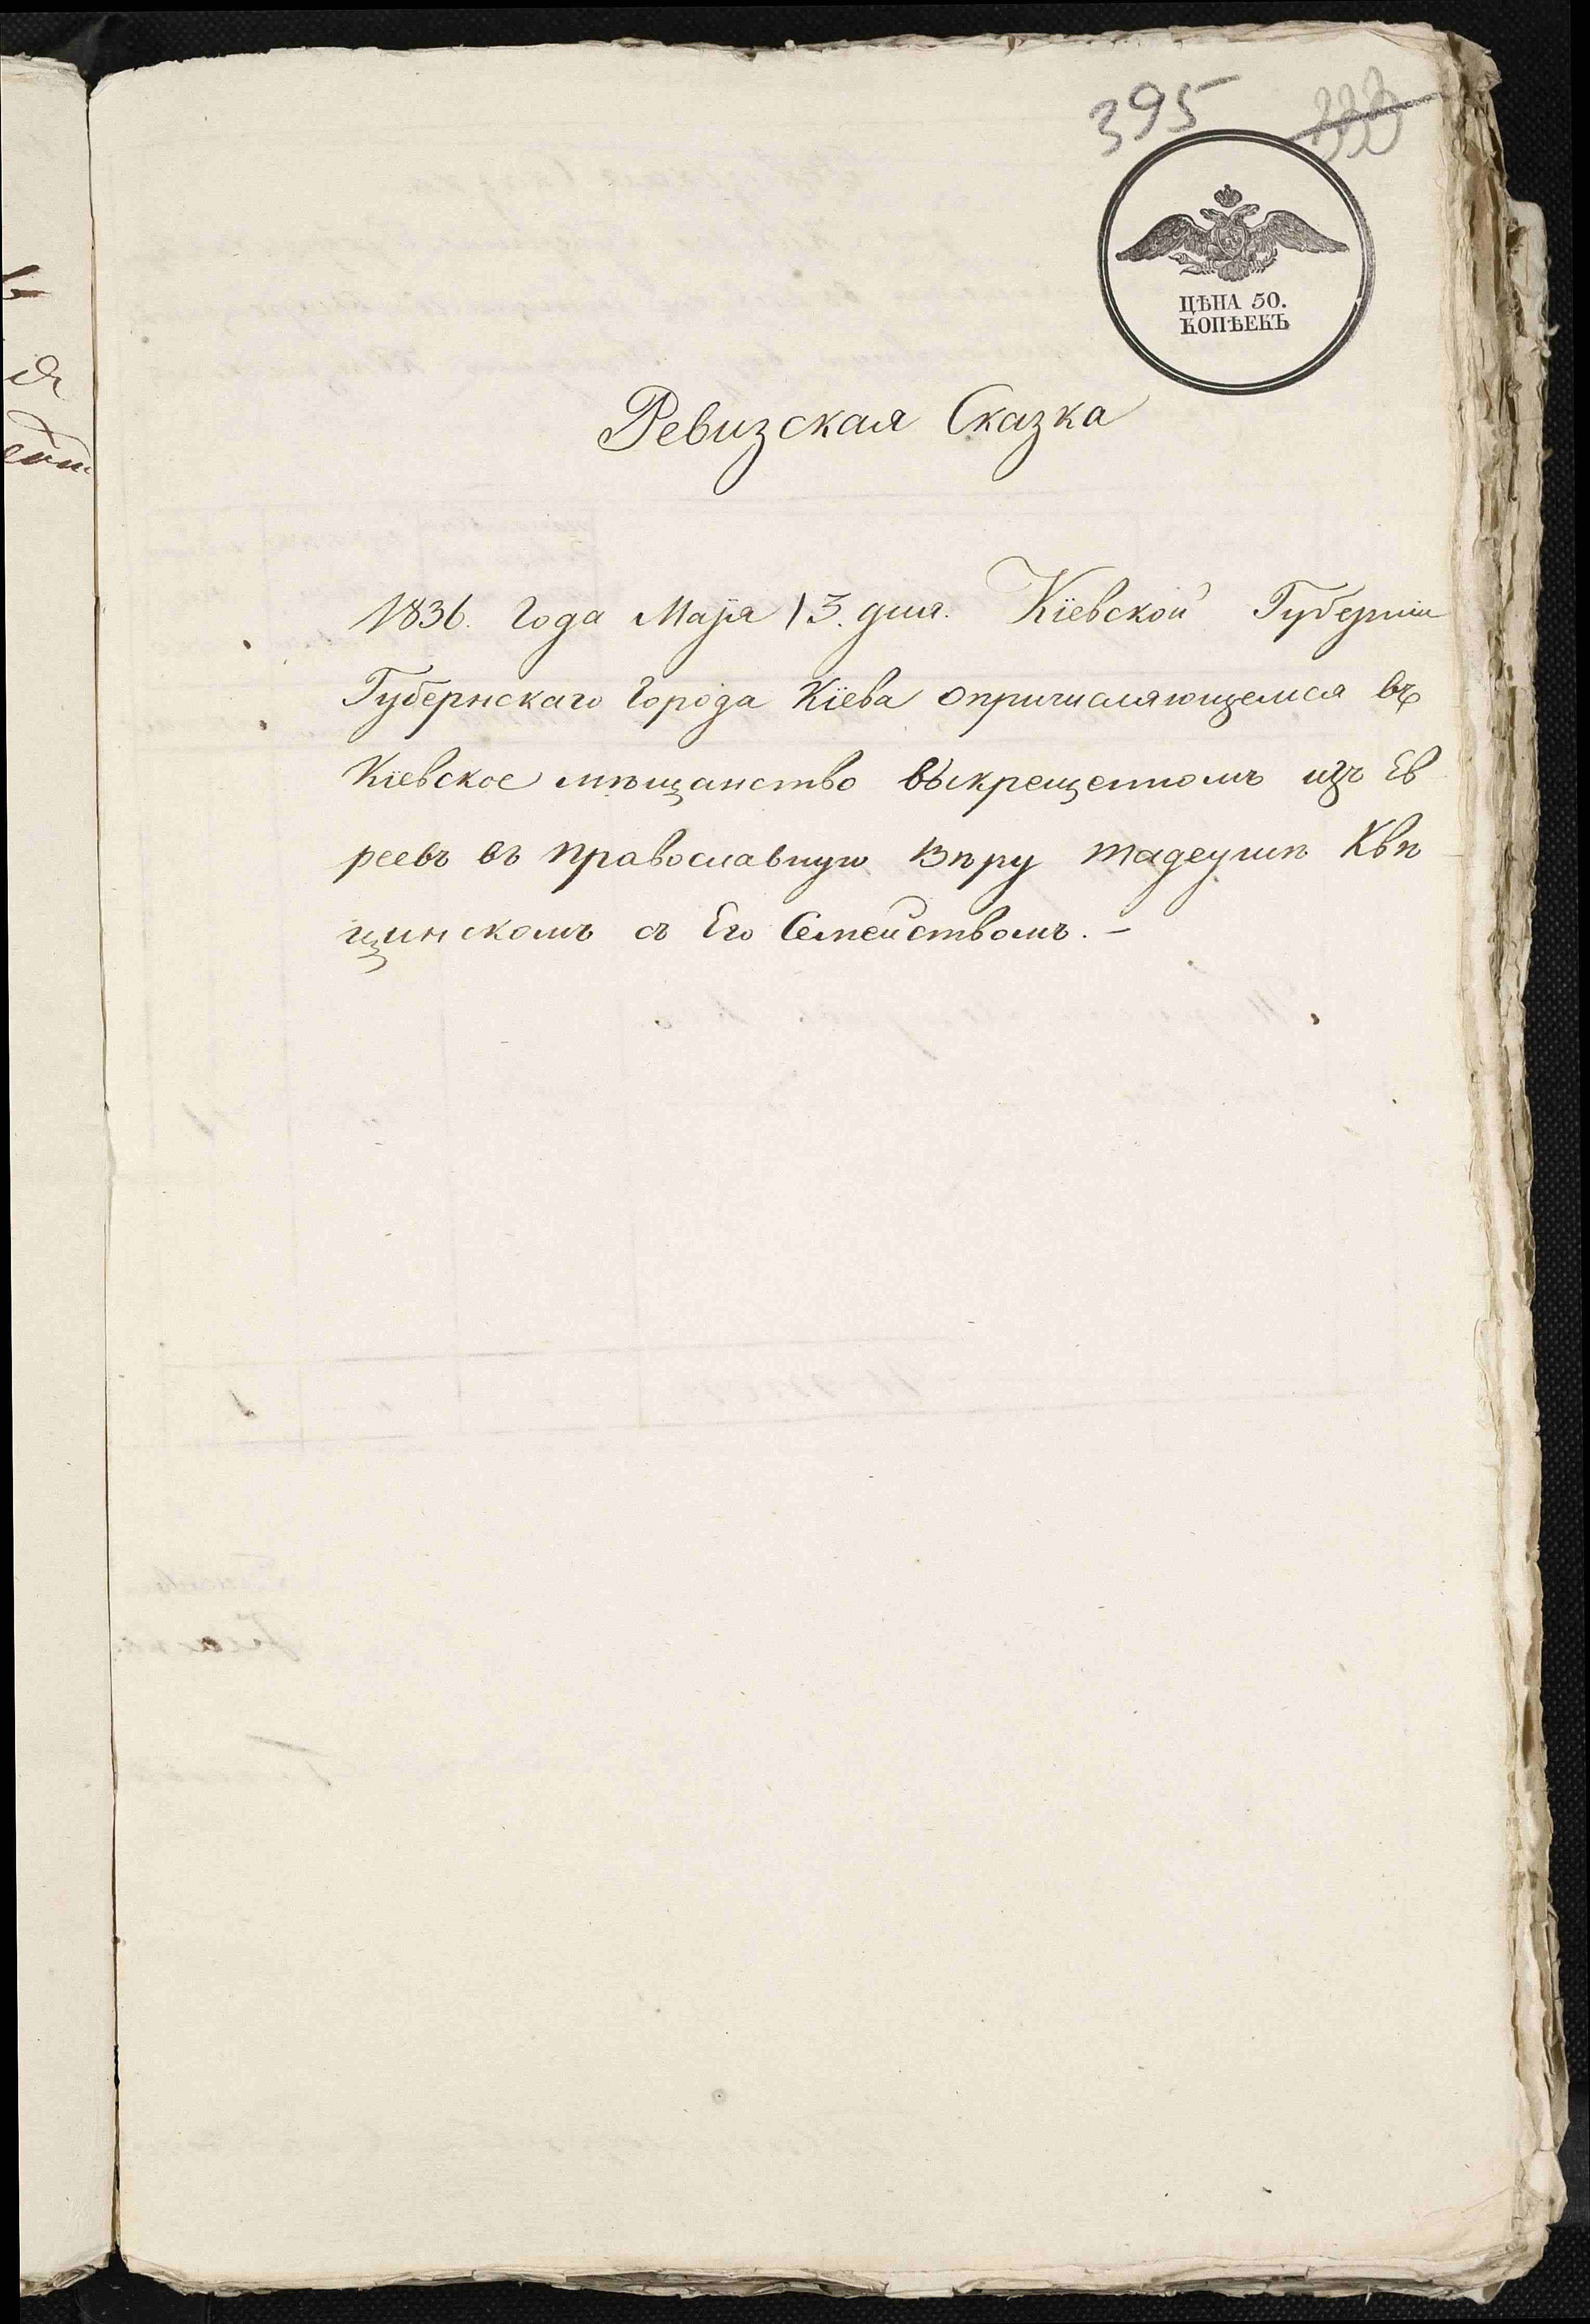 395
ЦѢНА 50.
КОПѢЕКЪ
Ревизская Сказка
1836. Года Маія 13. дня. Кіевской Губерніи
Губернскаго Города Кіева опричисляющемся въ
Кіевское мѣщанство выкрещенномъ изъ Ев
реевъ въ православную Вѣру Тадеушѣ Квѣ
цинскомъ съ Его Семействомъ. —